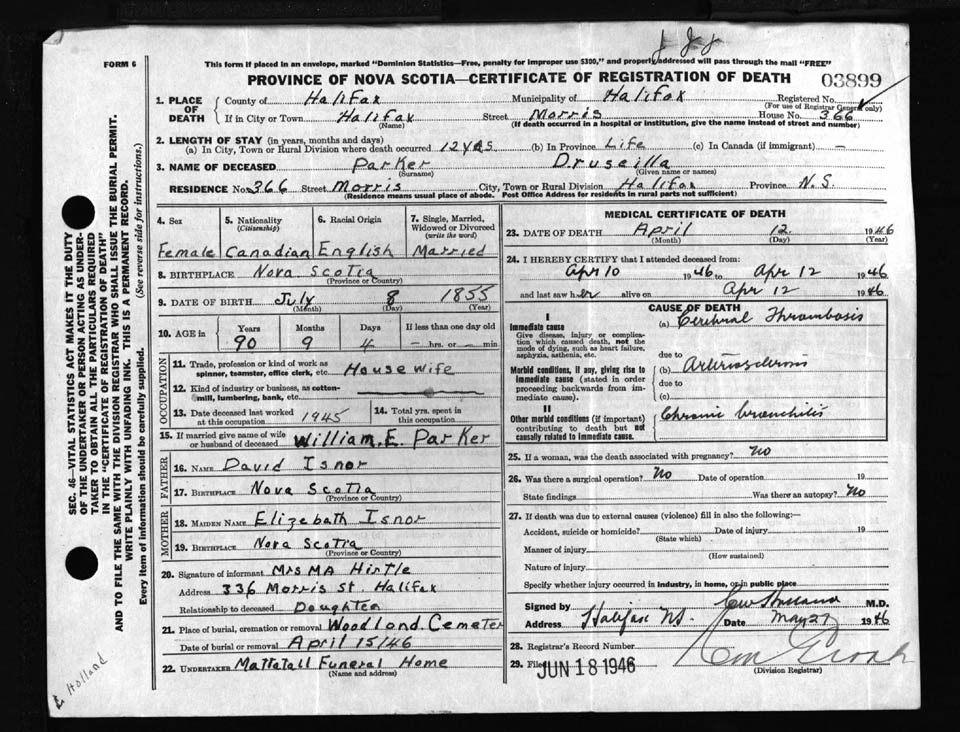 J J J
FORM 6
This form if placed in an envelope, marked "Dominion Statistics—Free, penalty for improper use $300," and properly addressed will pass through the mail "FREE"
PROVINCE OF NOVA SCOTIA—CERTIFICATE OF REGISTRATION OF DEATH
03899
1. PLACE OF DEATH
County of Halifax Municipality of Halifax Registered No.
(For use of Registrar General only)
If in City or Town Halifax Street Morris House No. 366
(Name) (If death occurred in a hospital or institution, give the name instead of street and number)
2. LENGTH OF STAY (in years, months and days)
(a) In City, Town or Rural Division where death occurred 12 yrs (b) In Province Life (c) In Canada (if immigrant) —
3. NAME OF DECEASED Parker Druscilla
(Surname) (Given name or names)
RESIDENCE No. 366 Street Morris City, Town or Rural Division Halifax Province N.S.
(Residence means usual place of abode. Post Office Address for residents in rural parts not sufficient)
4. Sex
Female
5. Nationality
(Citizenship)
Canadian
6. Racial Origin
English
7. Single, Married, Widowed or Divorced
(write the word)
Married
8. BIRTHPLACE Nova Scotia
(Province or Country)
9. DATE OF BIRTH July 8 1855
(Month) (Day) (Year)
10. AGE in Years Months Days If less than one day old
90 9 4 — hrs. or — min
OCCUPATION
11. Trade, profession or kind of work as spinner, teamster, office clerk, etc. House wife
12. Kind of industry or business, as cotton-mill, lumbering, bank, etc.
13. Date deceased last worked at this occupation 1945
14. Total yrs. spent in this occupation
15. If married give name of wife or husband of deceased William. E. Parker
FATHER
16. NAME David Isnor
17. BIRTHPLACE Nova Scotia
(Province or Country)
MOTHER
18. MAIDEN NAME Elizebath Isnor
19. BIRTHPLACE Nova Scotia
(Province or Country)
20. Signature of informant Mrs MA Hirtle
Address 336 Morris St. Halifax
Relationship to deceased Doughter
21. Place of burial, cremation or removal Woodlond. Cemeter
Date of burial or removal April 15/46
22. UNDERTAKER Mattatall Funeral Home
(Name and address)
MEDICAL CERTIFICATE OF DEATH
23. DATE OF DEATH April 12 1946
(Month) (Day) (Year)
24. I HEREBY CERTIFY that I attended deceased from:
Apr 10 1946 to Apr 12 1946
and last saw her alive on Apr 12 1946
CAUSE OF DEATH
I
Immediate cause
Give disease, injury or complication which caused death, not the mode of dying, such as heart failure, asphyxia, asthenia, etc.
(a) Cerebral Thrombosis
due to
Morbid conditions, if any, giving rise to immediate cause (stated in order proceeding backwards from immediate cause).
(b) Arteriosclerosis
due to
(c)
II
Other morbid conditions (if important) contributing to death but not causally related to immediate cause.
Chronic bronchitis
25. If a woman, was the death associated with pregnancy? No
26. Was there a surgical operation? No Date of operation 19
State findings Was there an autopsy? No
27. If death was due to external causes (violence) fill in also the following:—
Accident, suicide or homicide? Date of injury 19
(State which)
Manner of injury
(How sustained)
Nature of injury
Specify whether injury occurred in industry, in home, or in public place
Signed by Holland M.D.
Address Halifax NS. Date May 27 1946
28. Registrar's Record Number
29. Filed JUN 18 1946
(Division Registrar)
SEC. 46—VITAL STATISTICS ACT MAKES IT THE DUTY
OF THE UNDERTAKER OR PERSON ACTING AS UNDER-
TAKER TO OBTAIN ALL THE PARTICULARS REQUIRED
IN THE "CERTIFICATE OF REGISTRATION OF DEATH"
AND TO FILE THE SAME WITH THE DIVISION REGISTRAR WHO SHALL ISSUE THE BURIAL PERMIT.
WRITE PLAINLY WITH UNFADING INK. THIS IS A PERMANENT RECORD.
Every item of information should be carefully supplied. (See reverse side for instructions.)
Holland